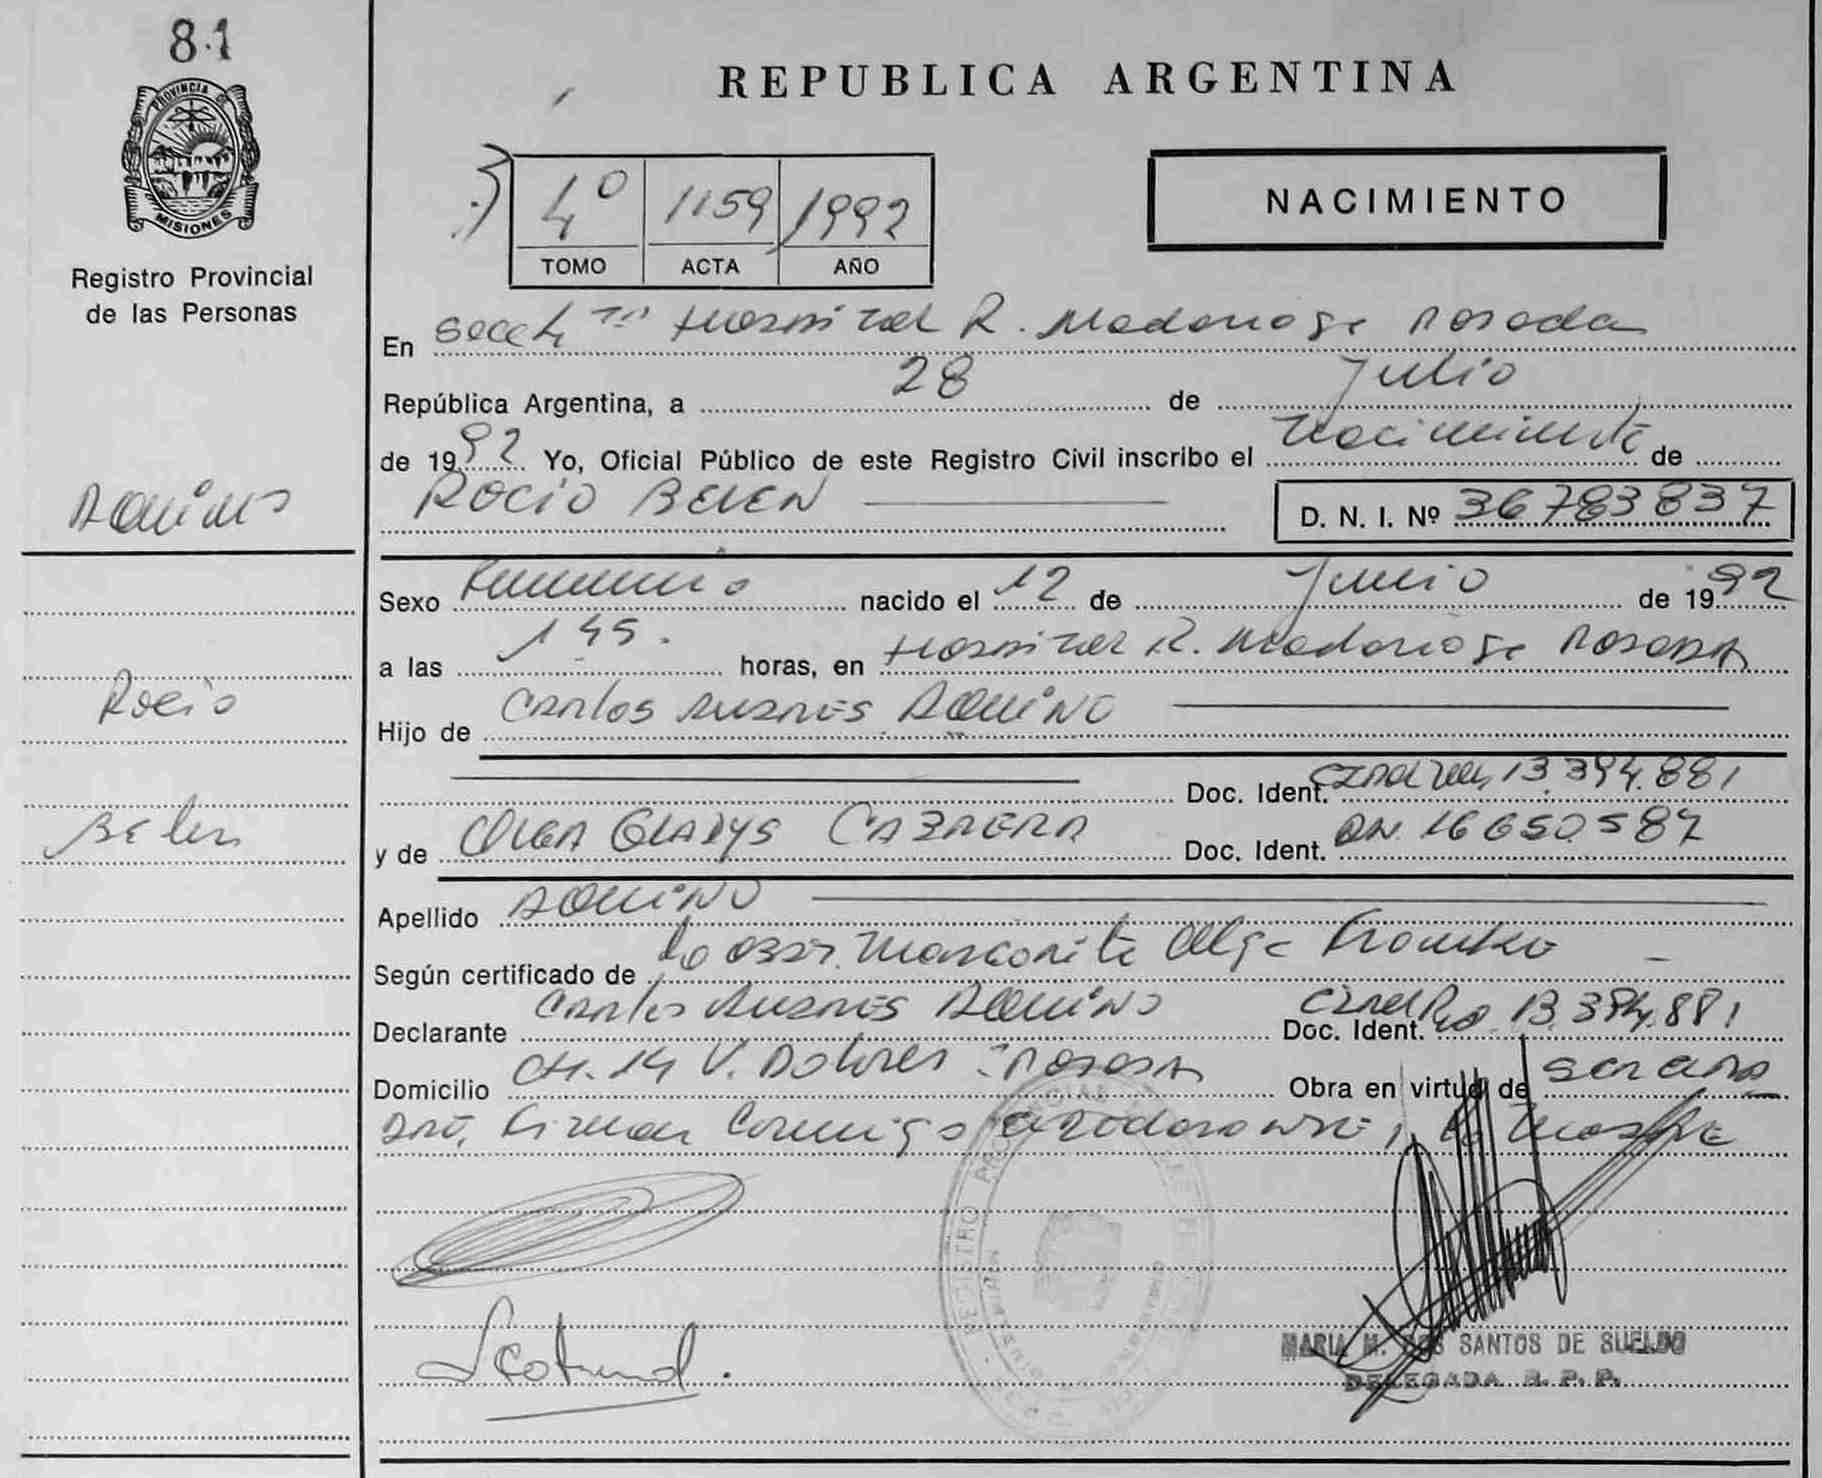 81
PROVINCIA DE
MISIONES
Registro Provincial
de las Personas
Aquino
Rocio
Belen
REPUBLICA ARGENTINA
4º 1159 1992
TOMO ACTA AÑO
NACIMIENTO
En Secc 4 Hospital R. Madariaga Posadas
República Argentina, a 28 de Julio
de 1992 Yo, Oficial Público de este Registro Civil inscribo el Nacimiento de
ROCIO BELEN D. N. I. Nº 36783837
Sexo Femenino nacido el 12 de Junio de 1992
a las 145. horas, en Hospital R. Madariaga Posadas
Hijo de Carlos Andres AQUINO
Doc. Ident. 13.394.881
y de OLGA GLADYS CABRERA Doc. Ident. 16650587
Apellido AQUINO
Según certificado de la Obst. Margarita Olga
Declarante Carlos Andres AQUINO Doc. Ident. 13.394.881
Domicilio CH. 14 V. Dolores Posadas Obra en virtud de ser
Firman la Madre
REGISTRO PROVINCIAL DE LAS PERSONAS
MARIA M. DOS SANTOS DE SUELDO
DELEGADA R. P. P.